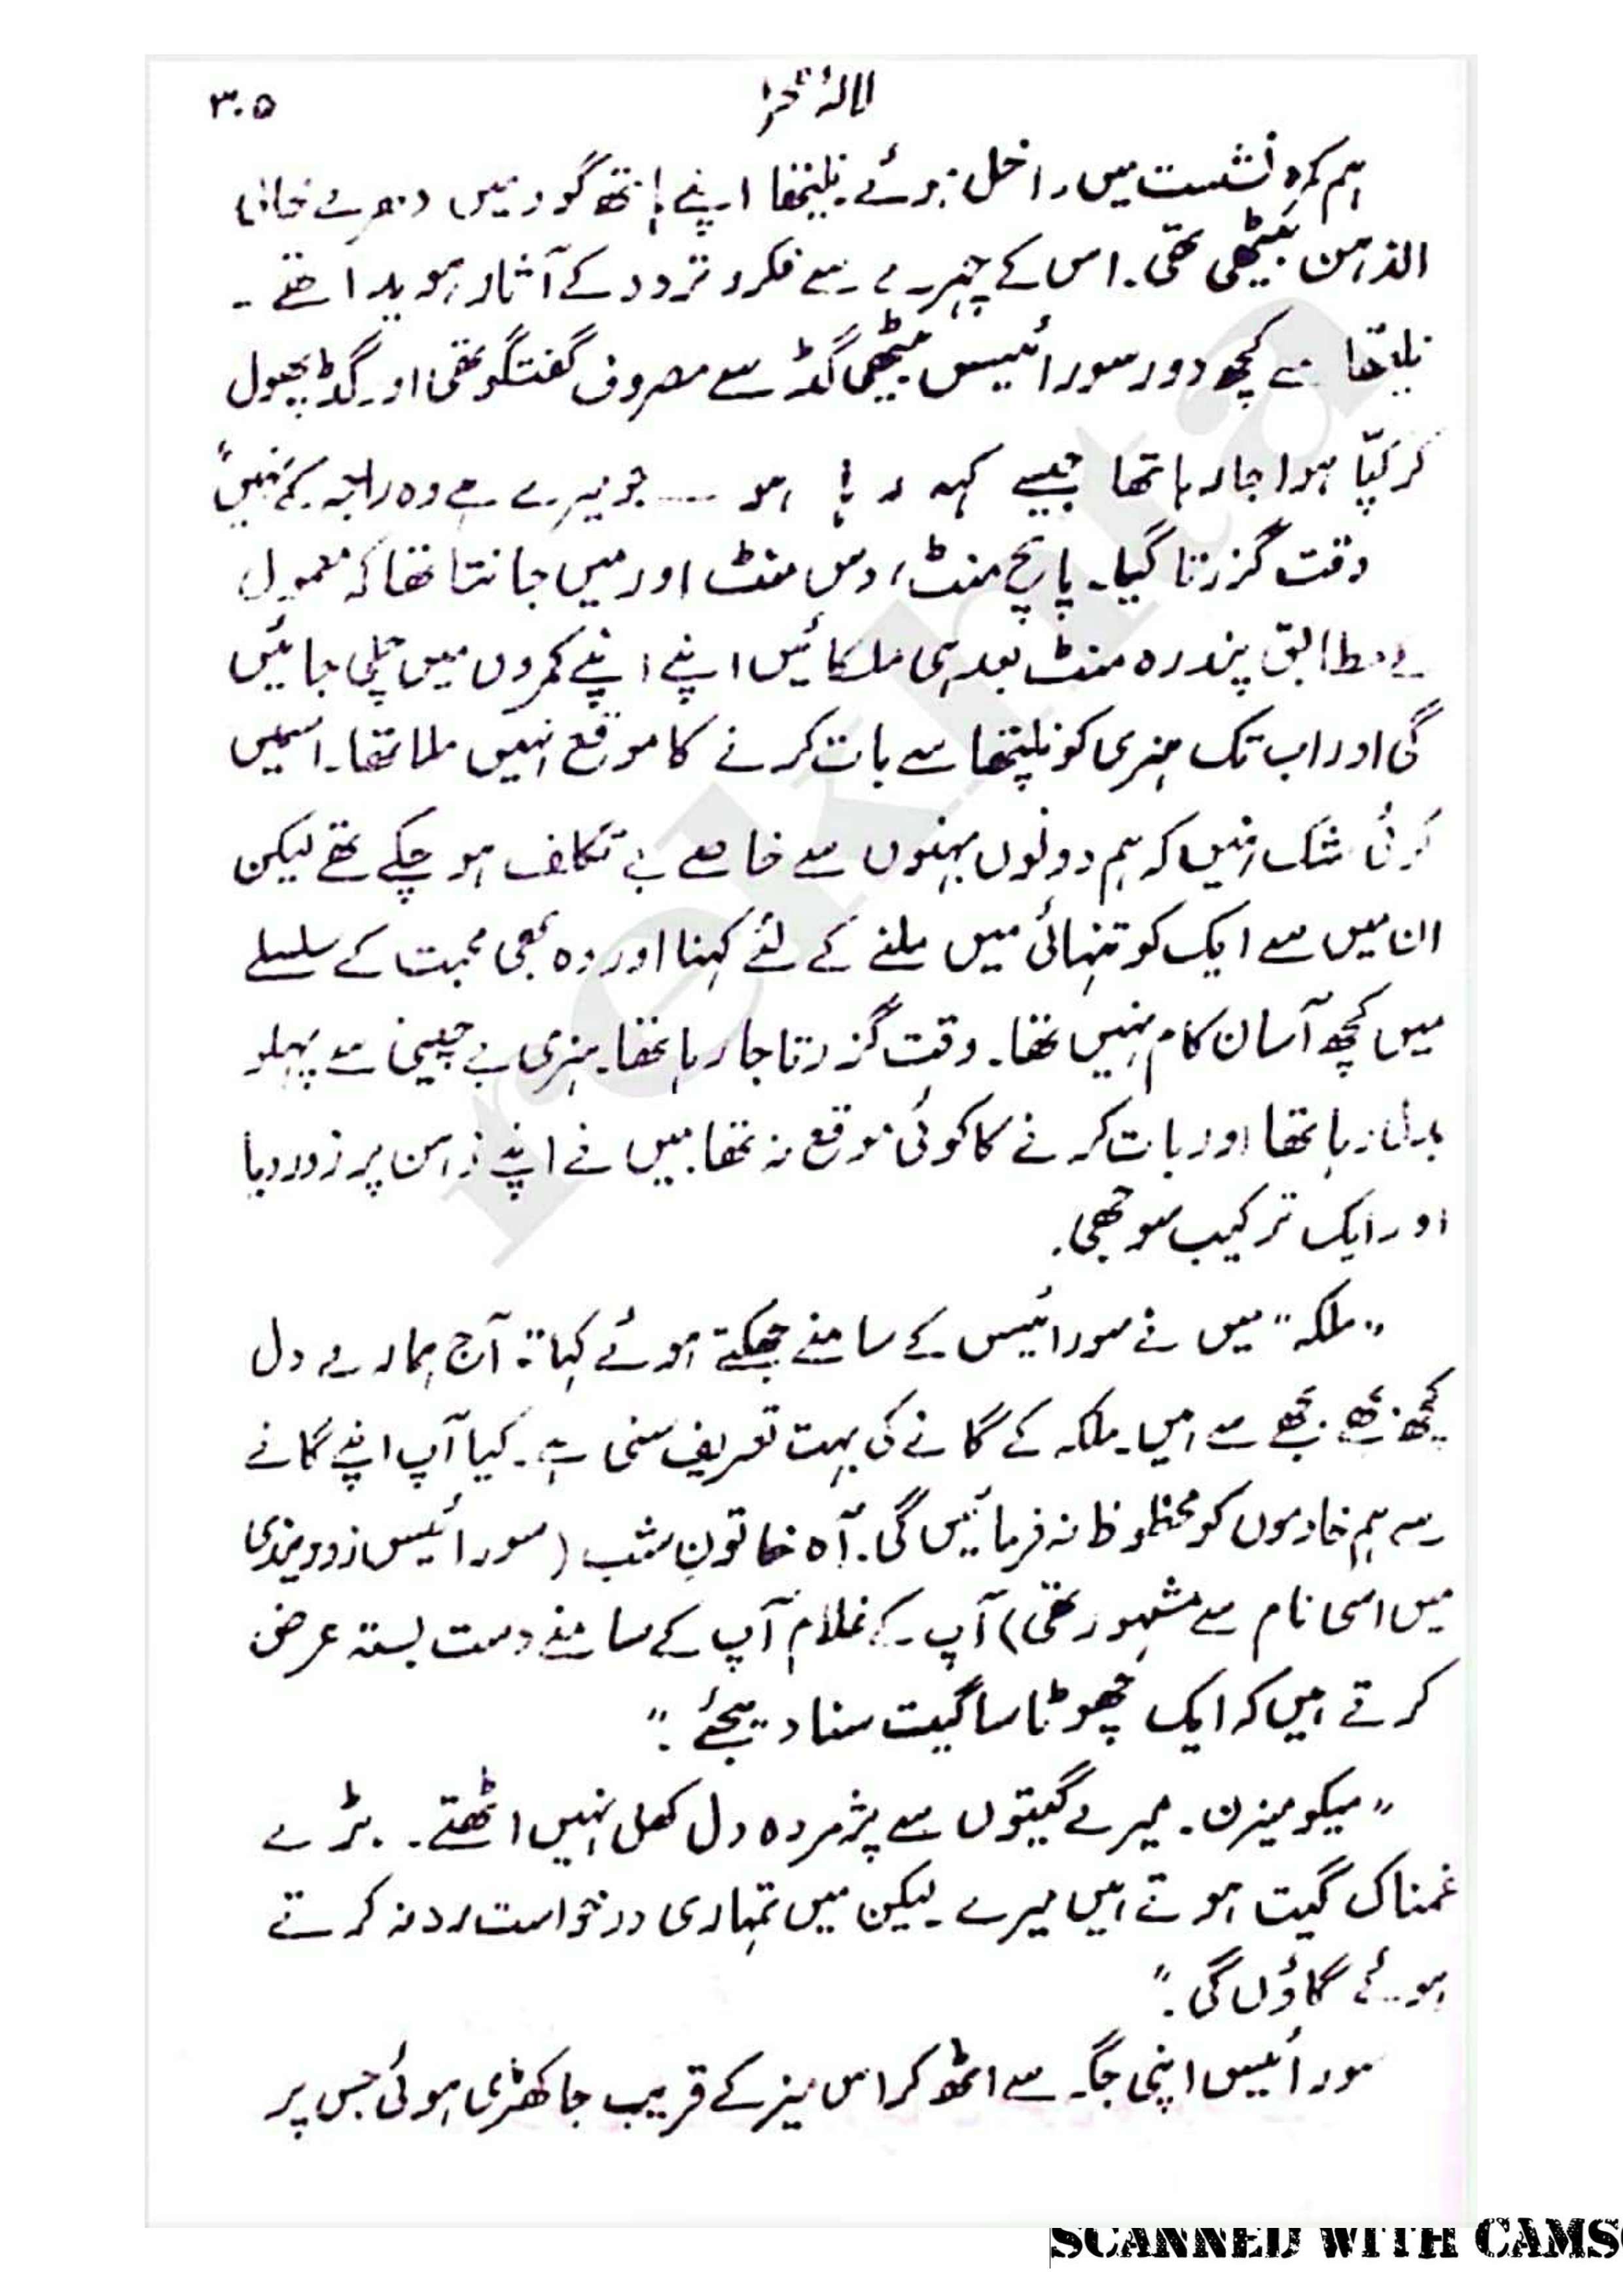 لالۂ صحرا
۳۰۵
ہم کمرہ نشست میں داخل ہوئے۔ نلیتھا اپنے ہاتھ گود میں دھرے خالی
الذہن بیٹھی تھی۔ اس کے چہرے سے فکر و تردد کے آثار ہویدا تھے۔
نلیتھا سے کچھ دور سورائیس بیٹھی گڈ سے مصروف گفتگو تھی اور گڈ پھول
کر کپّا ہوا جا رہا تھا جیسے کہہ رہا ہو ـــ جو میرے ہے وہ راجہ کے نہیں"
وقت گزرتا گیا۔ پانچ منٹ، دس منٹ اور میں جانتا تھا کہ معمول
کے مطابق پندرہ منٹ بعد ہی ملکائیں اپنے اپنے کمروں میں چلی جائیں
گی اور اب تک ہنری کو نلیتھا سے بات کرنے کا موقع نہیں ملا تھا۔ اسمیں
کوئی شک نہیں کہ ہم دونوں بہنوں سے خاصے بے تکلف ہو چکے تھے لیکن
ان میں سے ایک کو تنہائی میں ملنے کے لئے کہنا اور وہ بھی محبت کے سلسلے
میں کچھ آسان کام نہیں تھا۔ وقت گزرتا جا رہا تھا۔ ہنری بے چینی سے پہلو
بدل رہا تھا اور بات کرنے کا کوئی موقع نہ تھا۔ میں نے اپنے ذہن پر زور دیا
اور ایک ترکیب سوجھی۔
"ملکہ" میں نے سورائیس کے سامنے جھکتے ہوئے کہا: "آج ہمارے دل
کچھ بجھے بجھے سے ہیں۔ ملکہ کے گانے کی بہت تعریف سنی ہے۔ کیا آپ اپنے گانے
سے ہم خادموں کو محظوظ نہ فرمائیں گی۔ آہ خاتونِ شب (سورائیس زوویندی
میں اسی نام سے مشہور تھی) آپ کے غلام آپ کے سامنے دست بستہ عرض
کرتے ہیں کہ ایک چھوٹا سا گیت سنا دیجئے۔"
"میکومیزن۔ میرے گیتوں سے پژمردہ دل کھل نہیں اٹھتے۔ بڑے
غمناک گیت ہوتے ہیں میرے۔ لیکن میں تمہاری درخواست رد نہ کرتے
ہوئے گاؤں گی۔"
سورائیس اپنی جگہ سے اٹھ کر اس میز کے قریب جا کھڑی ہوئی جس پر
rekhta
SCANNED WITH CAMS